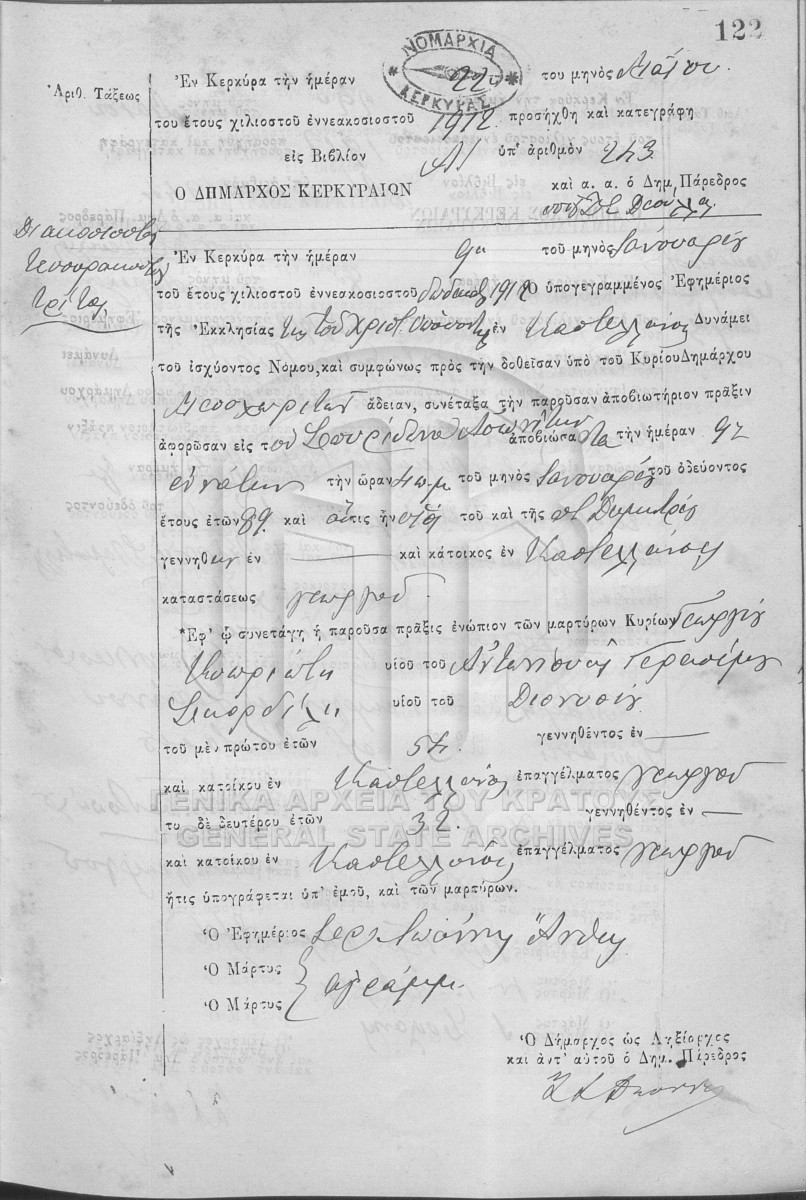 122
ΝΟΜΑΡΧΙΑ
ΚΕΡΚΥΡΑΣ
Ἀριθ. Τάξεως
Ἐν Κερκύρα τὴν ἡμέραν 22αν τοῦ μηνὸς Μαΐου
τοῦ ἔτους χιλιοστοῦ ἐννεακοσιοστοῦ 1912 προσήχθη καὶ κατεγράφη
εἰς Βιβλίον Α/ ὑπ' ἀριθμὸν 243
Ο ΔΗΜΑΡΧΟΣ ΚΕΡΚΥΡΑΙΩΝ καὶ α. α. ὁ Δημ. Πάρεδρος
Διακοσιοστὸν
Τεσσαρακοστὸν
Τρίτον
Ἐν Κερκύρα τὴν ἡμέραν 9ην τοῦ μηνὸς Ἰανουαρίου
τοῦ ἔτους χιλιοστοῦ ἐννεακοσιοστοῦ δωδεκάτου 1912 Ὁ ὑπογεγραμμένος Ἐφημέριος
τῆς Ἐκκλησίας τῆς τοῦ Χριστοῦ ἐν Καστελλάνοις Δυνάμει
τοῦ ἰσχύοντος Νόμου, καὶ συμφώνως πρὸς τὴν δοθεῖσαν ὑπὸ τοῦ Κυρίου Δημάρχου
Μεσοχωριτῶν ἄδειαν, συνέταξα τὴν παροῦσαν ἀποβιωτήριον πρᾶξιν
ἀφορῶσαν εἰς τὸν Σπυρίδωνα ἀποβιώσαντα τὴν ἡμέραν 9ην
ἐννάτην τὴν ὥραν 4 π.μ. τοῦ μηνὸς Ἰανουαρίου τοῦ ὁδεύοντος
ἔτους ἐτῶν 89 καὶ οὗτις ἦν υἱὸς τοῦ καὶ τῆς π Δημητρίου
γεννηθεὶς ἐν — καὶ κάτοικος ἐν Καστελλάνοις
καταστάσεως γεωργοῦ
Ἐφ' ᾧ συνετάγη ἡ παροῦσα πρᾶξις ἐνώπιον τῶν μαρτύρων Κυρίων Γεωργίου
υἱοῦ τοῦ Ἀντωνίου καὶ Γερασίμου
Σκορδίλη υἱοῦ τοῦ Διονυσίου
τοῦ μὲν πρώτου ἐτῶν 54 γεννηθέντος ἐν —
καὶ κατοίκου ἐν Καστελλάνοις ἐπαγγέλματος γεωργοῦ
ΓΕΝΙΚΑ ΑΡΧΕΙΑ ΤΟΥ ΚΡΑΤΟΥΣ
το δὲ δευτέρου ἐτῶν 32 γεννηθέντος ἐν —
GENERAL STATE ARCHIVES
καὶ κατοίκου ἐν Καστελλάνοις ἐπαγγέλματος γεωργοῦ
ἥτις ὑπογράφεται ὑπ' ἐμοῦ, καὶ τῶν μαρτύρων.
Ὁ Ἐφημέριος Ἰερ. Ἰωάννης Ἄνθης
Ὁ Μάρτυς
ἀγράμμ.
Ὁ Μάρτυς
Ὁ Δήμαρχος ὡς Ληξίαρχος
καὶ ἀντ' αὐτοῦ ὁ Δημ. Πάρεδρος